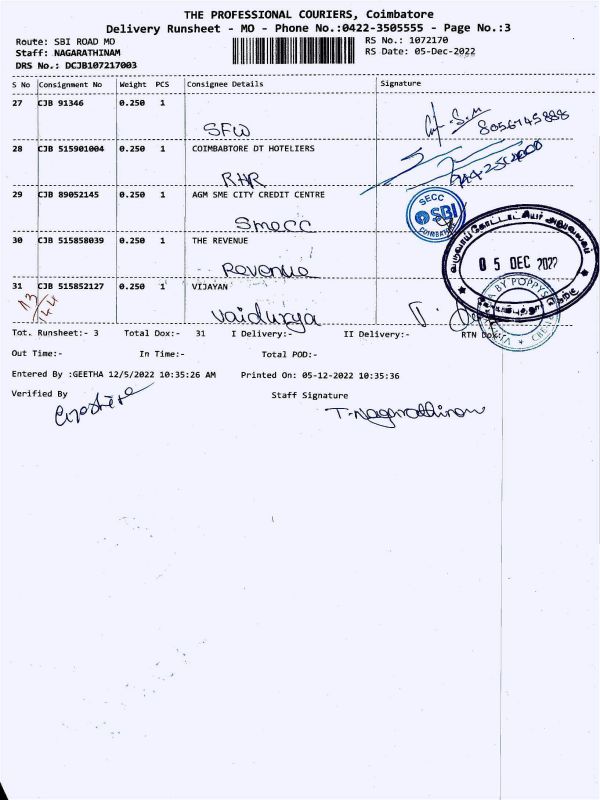 THE PROFESSIONAL COURIERS, Coimbatore
Delivery Runsheet - MO - Phone No.:0422-3505555 - Page No.:3
Route: SBI ROAD MO
RS No.: 1072170
Staff: NAGARATHINAM
RS Date: 05-Dec-2022
DRS No.: DCJB107217003
S No Consignment No Weight PCS Consignee Details Signature
27 CJB 91346 0.250 1
SFW 8056745888
28 CJB 515901004 0.250 1 COIMBABTORE DT HOTELIERS
RHR
29 CJB 89052145 0.250 1 AGM SME CITY CREDIT CENTRE
SECC
SBI
COIMBATORE
Smecc
30 CJB 515858039 0.250 1 THE REVENUE
Revenue
05 DEC 2022
31 CJB 515852127 0.250 1 VIJAYAN
13/44
Vaidurya
BY POPPYS
Tot. Runsheet:- 3 Total Dox:- 31 I Delivery:- II Delivery:- RTN Dox:-
Out Time:- In Time:- Total POD:-
Entered By :GEETHA 12/5/2022 10:35:26 AM Printed On: 05-12-2022 10:35:36
Verified By Staff Signature
T. Nagarathinam